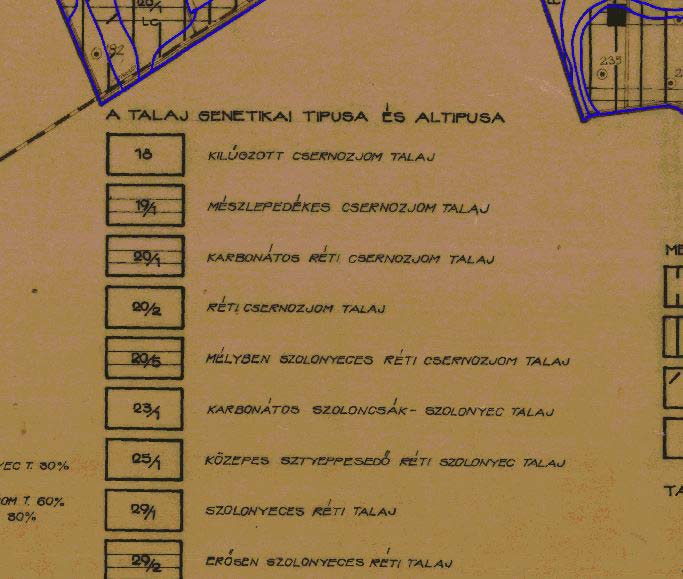 20/1
LC
192
235
A TALAJ GENETIKAI TIPUSA ÉS ALTIPUSA
18 KILÚGZOTT CSERNOZJOM TALAJ
19/1 MÉSZLEPEDÉKES CSERNOZJOM TALAJ
20/1 KARBONÁTOS RÉTI CSERNOZJOM TALAJ
20/2 RÉTI CSERNOZJOM TALAJ
20/5 MÉLYBEN SZOLONYECES RÉTI CSERNOZJOM TALAJ
23/1 KARBONÁTOS SZOLONCSÁK- SZOLONYEC TALAJ
25/1 KÖZEPES SZTYEPPESEDŐ RÉTI SZOLONYEC TALAJ
29/1 SZOLONYECES RÉTI TALAJ
29/2 ERŐSEN SZOLONYECES RÉTI TALAJ
YEC T. 80%
OM T. 60%
80%
ME
TA